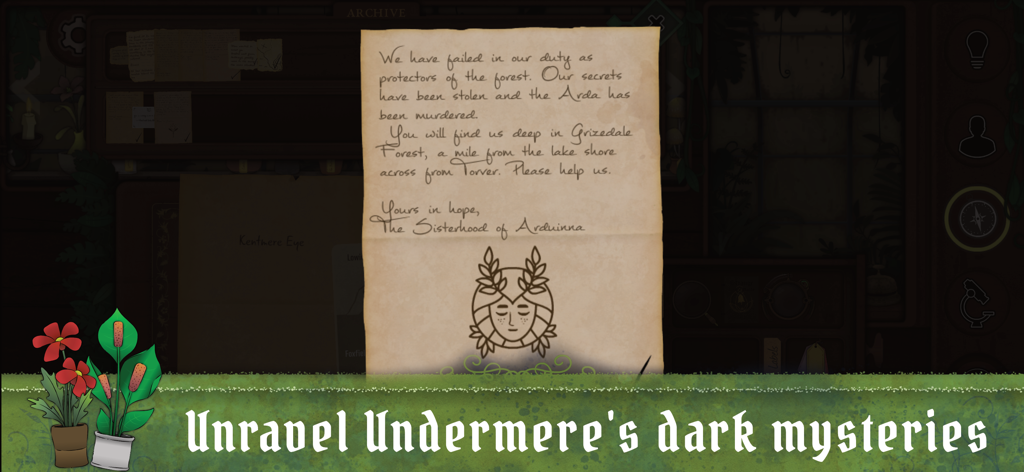 ARCHIVE
We have failed in our duty as
protectors of the forest. Our secrets
have been stolen and the Arda has
been murdered.
You will find us deep in Grizedale
Forest, a mile from the lake shore
across from Torver. Please help us.
Yours in hope,
The Sisterhood of Arduinna
Kentmere Eye
Unravel Undermere's dark mysteries